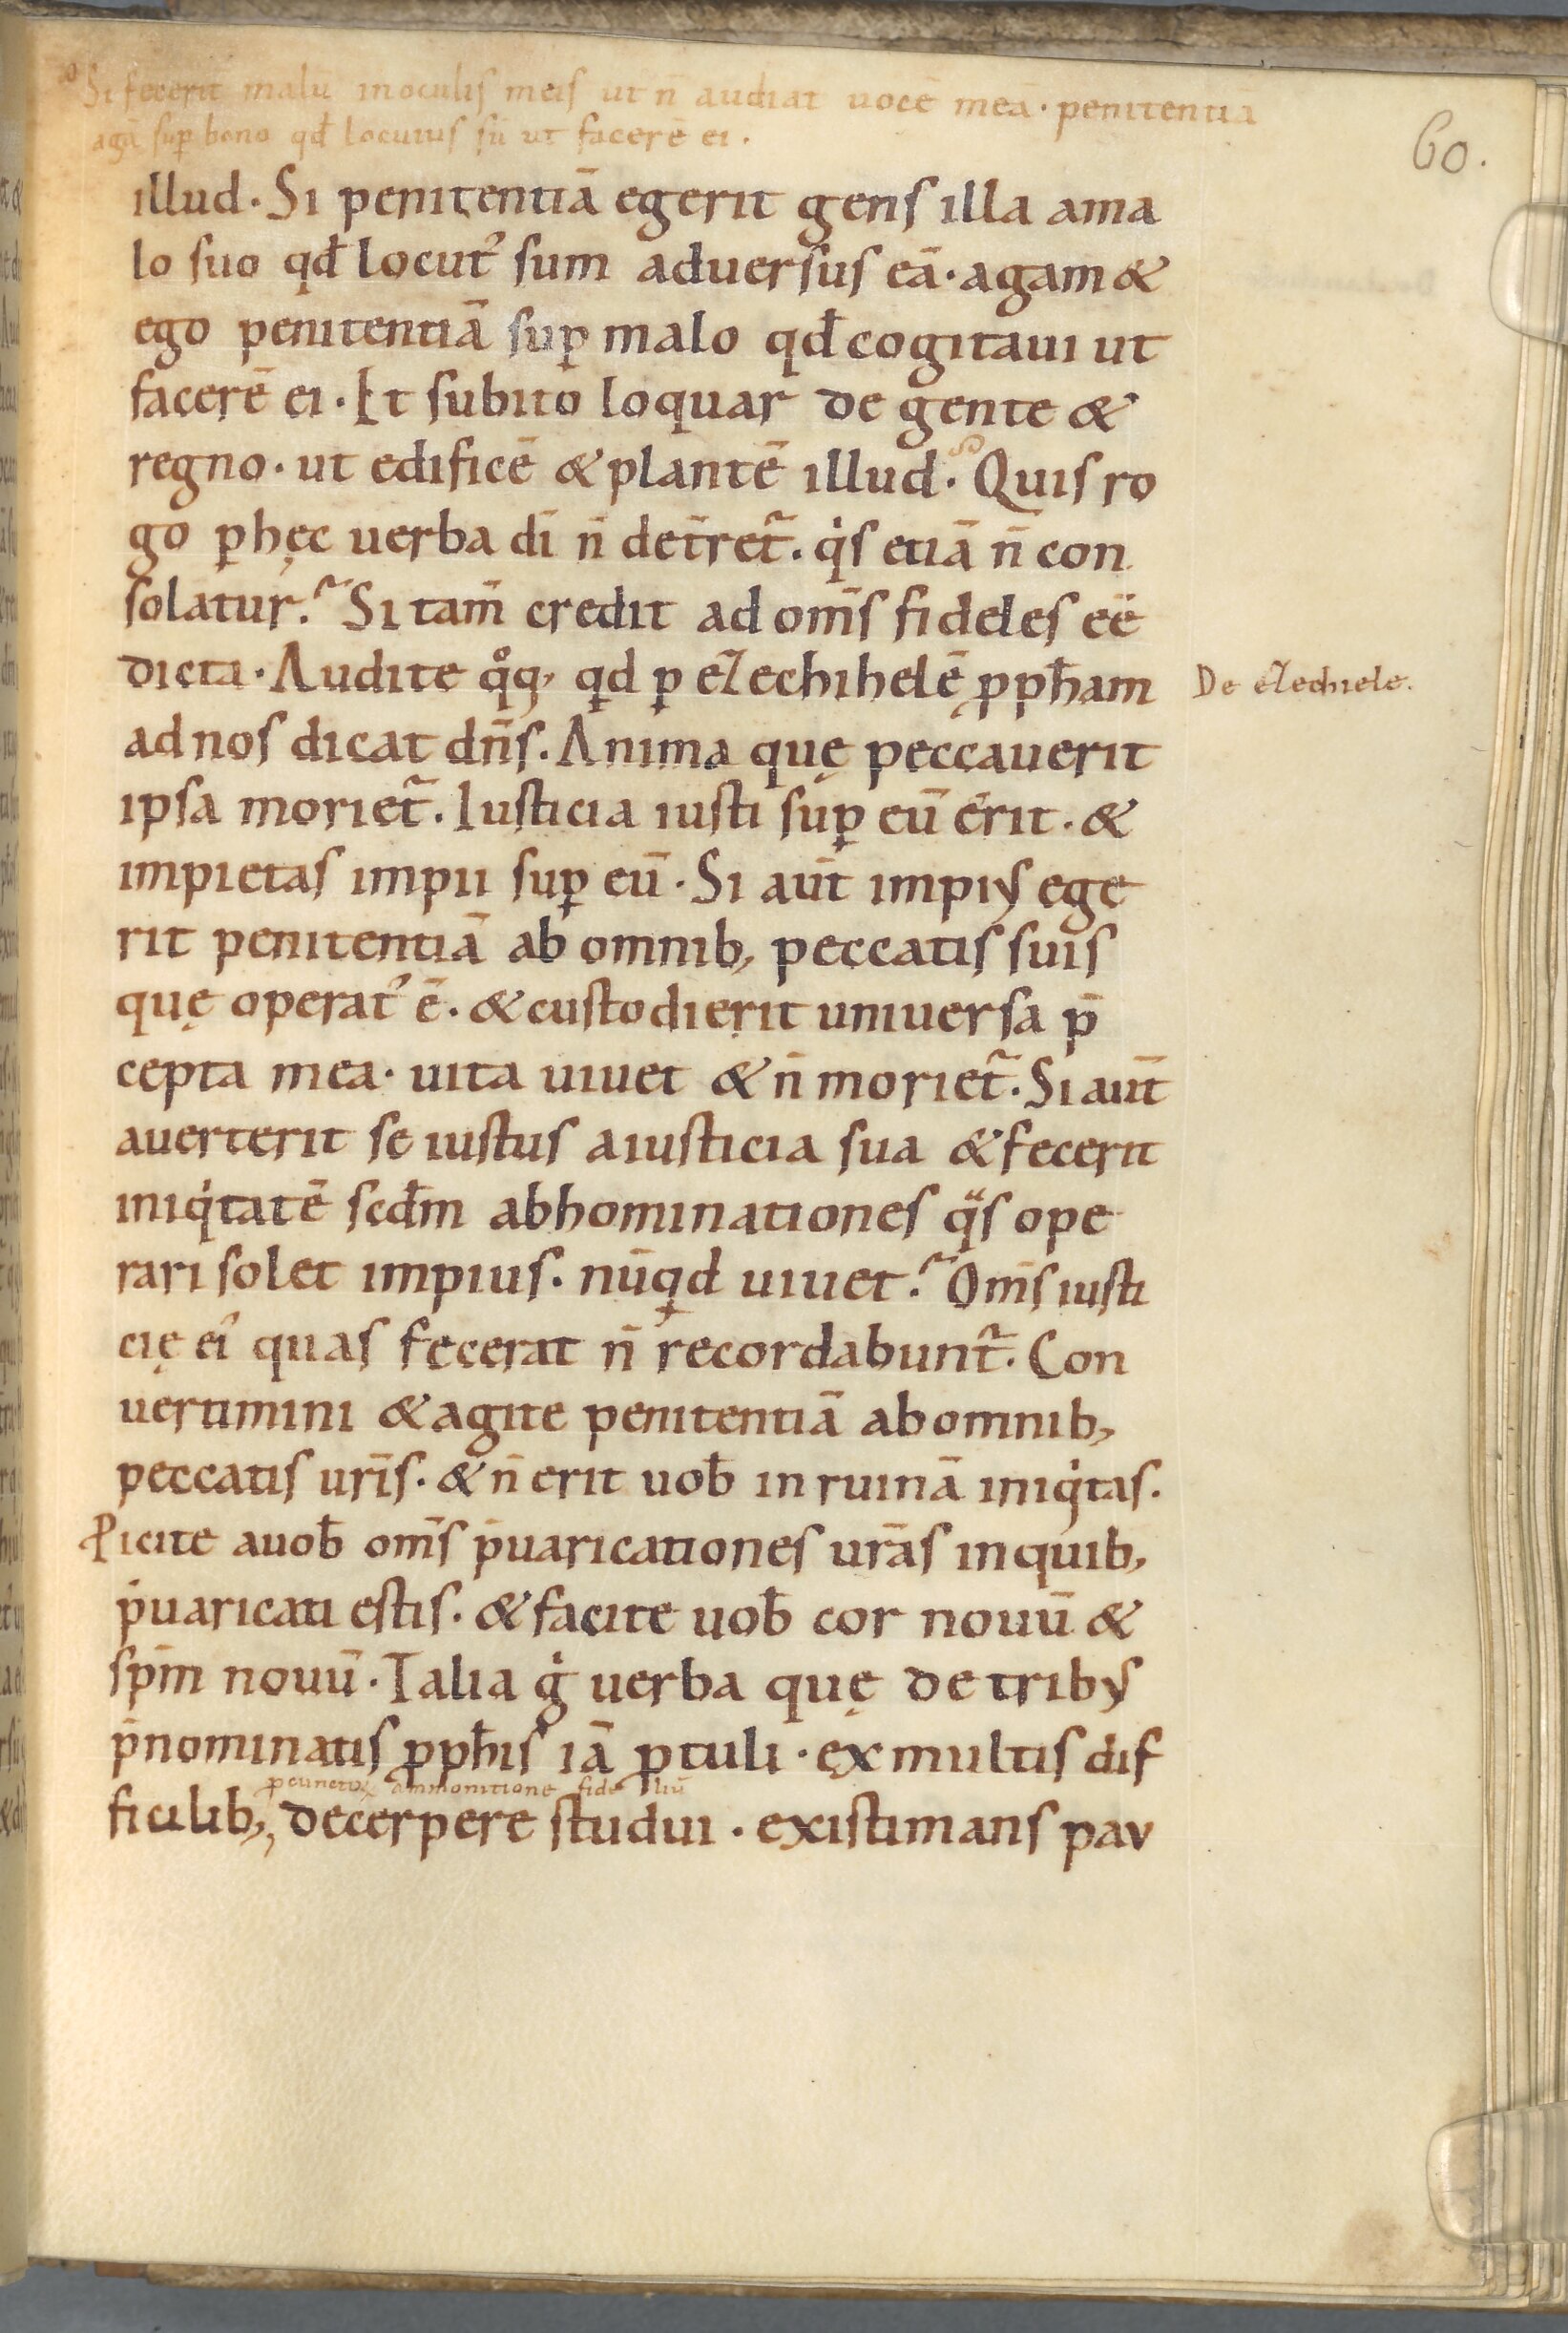 Si fecerit malū in oculis meis ut n̄ audiat uocē meā · penitentia
agā sup̱ bono qđ locutus sū ut facerē ei .
60.
illud · Si penitentiā egerit gens illa a ma
lo suo qđ locut᾿ sum aduersus eā · agam &
ego penitentiā sup̱ malo qđ cogitaui ut
facerē ei · Et subito loquar de gente &
regno · ut edificē & plantē illud · Quis ro
go p̱ hęc uerba dī n̄ det̄ret᷑ . qͥs etiā n̄ con
solatur ? Si tam̄ credit ad om̄s fideles eē
dicta · Audite qͦq; qd p̱ ezechihelē ꝓph̄am
De ezechiele .
ad nos dicat dn̄s . Anima quę peccauerit
ipsa moriet᷑ . Iusticia iusti sup̱ eū erit . &
impietas impii sup̱ eū · Si aūt impiꝰ ege
rit penitentiā ab omnib; peccatis suis
quę operat᾿ ē . & custodierit uniuersa p̄
cepta mea · uita uiuet & n̄ moriet᷑ . Si aūt
auerterit se iustus a iusticia sua & fecerit
iniqͥtatē scđm abhominationes qᵃs ope
rari solet impius . nūqd uiuet ? Om̄s iusti
cię ei᾿ quas fecerat n̄ recordabunt᷑ . Con
uertimini & agite penitentiā ab omnib;
peccatis ur̄is . & n̄ erit uob̄ in ruinā iniqͥtas .
Picite a uob̄ om̄s p̄uaricationes ur̄as in quib;
p̄uaricati estis . & facite uob̄ cor nouū &
sp̄m nouū · Talia gͥ uerba quę de tribꝰ
p̄nominatis ꝓph̄is iā ꝓtuli · ex multis dif
p cunctoꝝ ammonitione fideliū
ficilib; decerpere studui · existimans pau